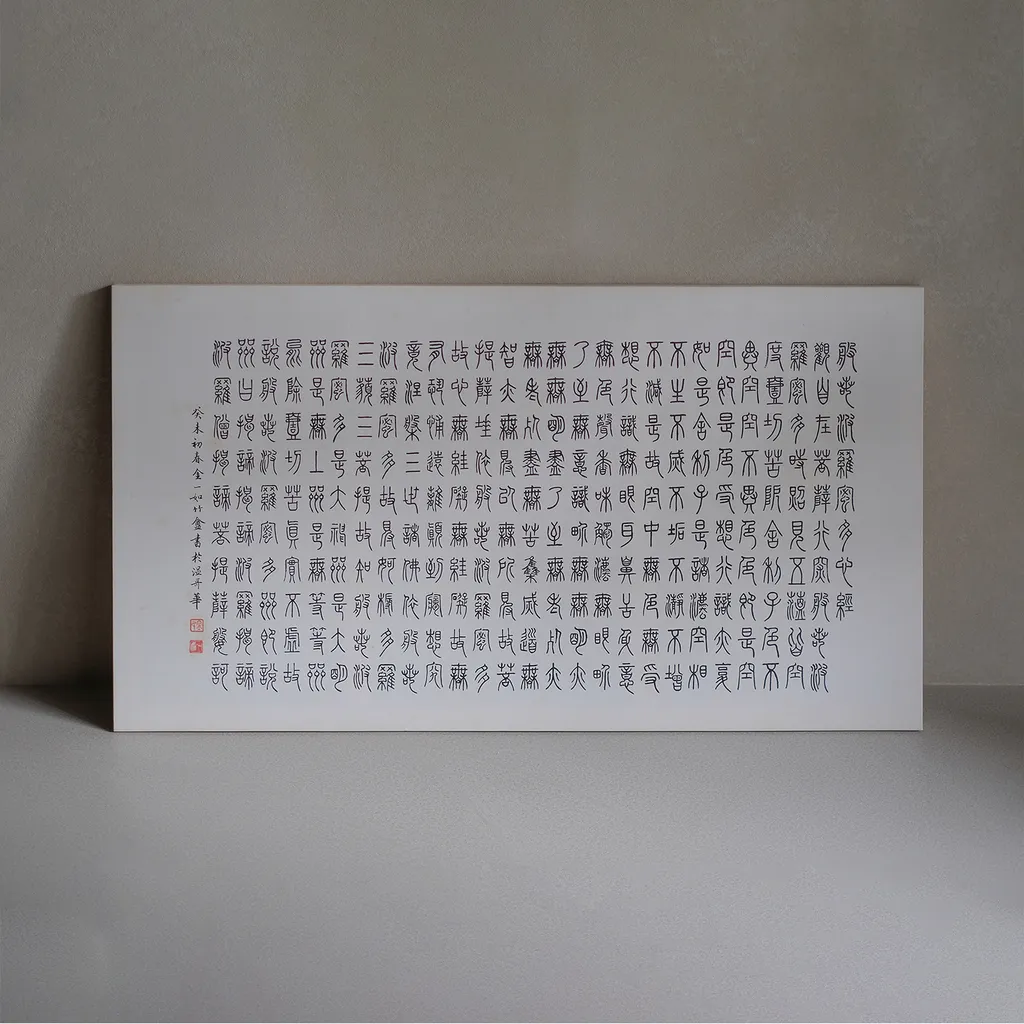 般若波羅蜜多心經
觀自在菩薩行深般若波
羅蜜多時照見五蘊皆空
度壹切苦厄舍利子色不
異空空不異色色即是空
空即是色受想行識亦復
如是舍利子是諸法空相
不生不滅不垢不淨不增
不減是故空中無色無受
想行識無眼耳鼻舌身意
無色聲香味觸法無眼界
乃至無意識界無無明亦
無無明盡乃至無老死亦
無老死盡無苦集滅道無
智亦無得以無所得故菩
提薩埵依般若波羅蜜多
故心無罣礙無罣礙故無
有恐怖遠離顛倒夢想究
竟涅槃三世諸佛依般若
波羅蜜多故得阿耨多羅
三藐三菩提故知般若波
羅蜜多是大神咒是大明
咒是無上咒是無等等咒
能除壹切苦真實不虛故
說般若波羅蜜多咒即說
咒曰揭諦揭諦波羅揭諦
波羅僧揭諦菩提薩婆訶
癸未初春金一如竹盦書於溫哥華